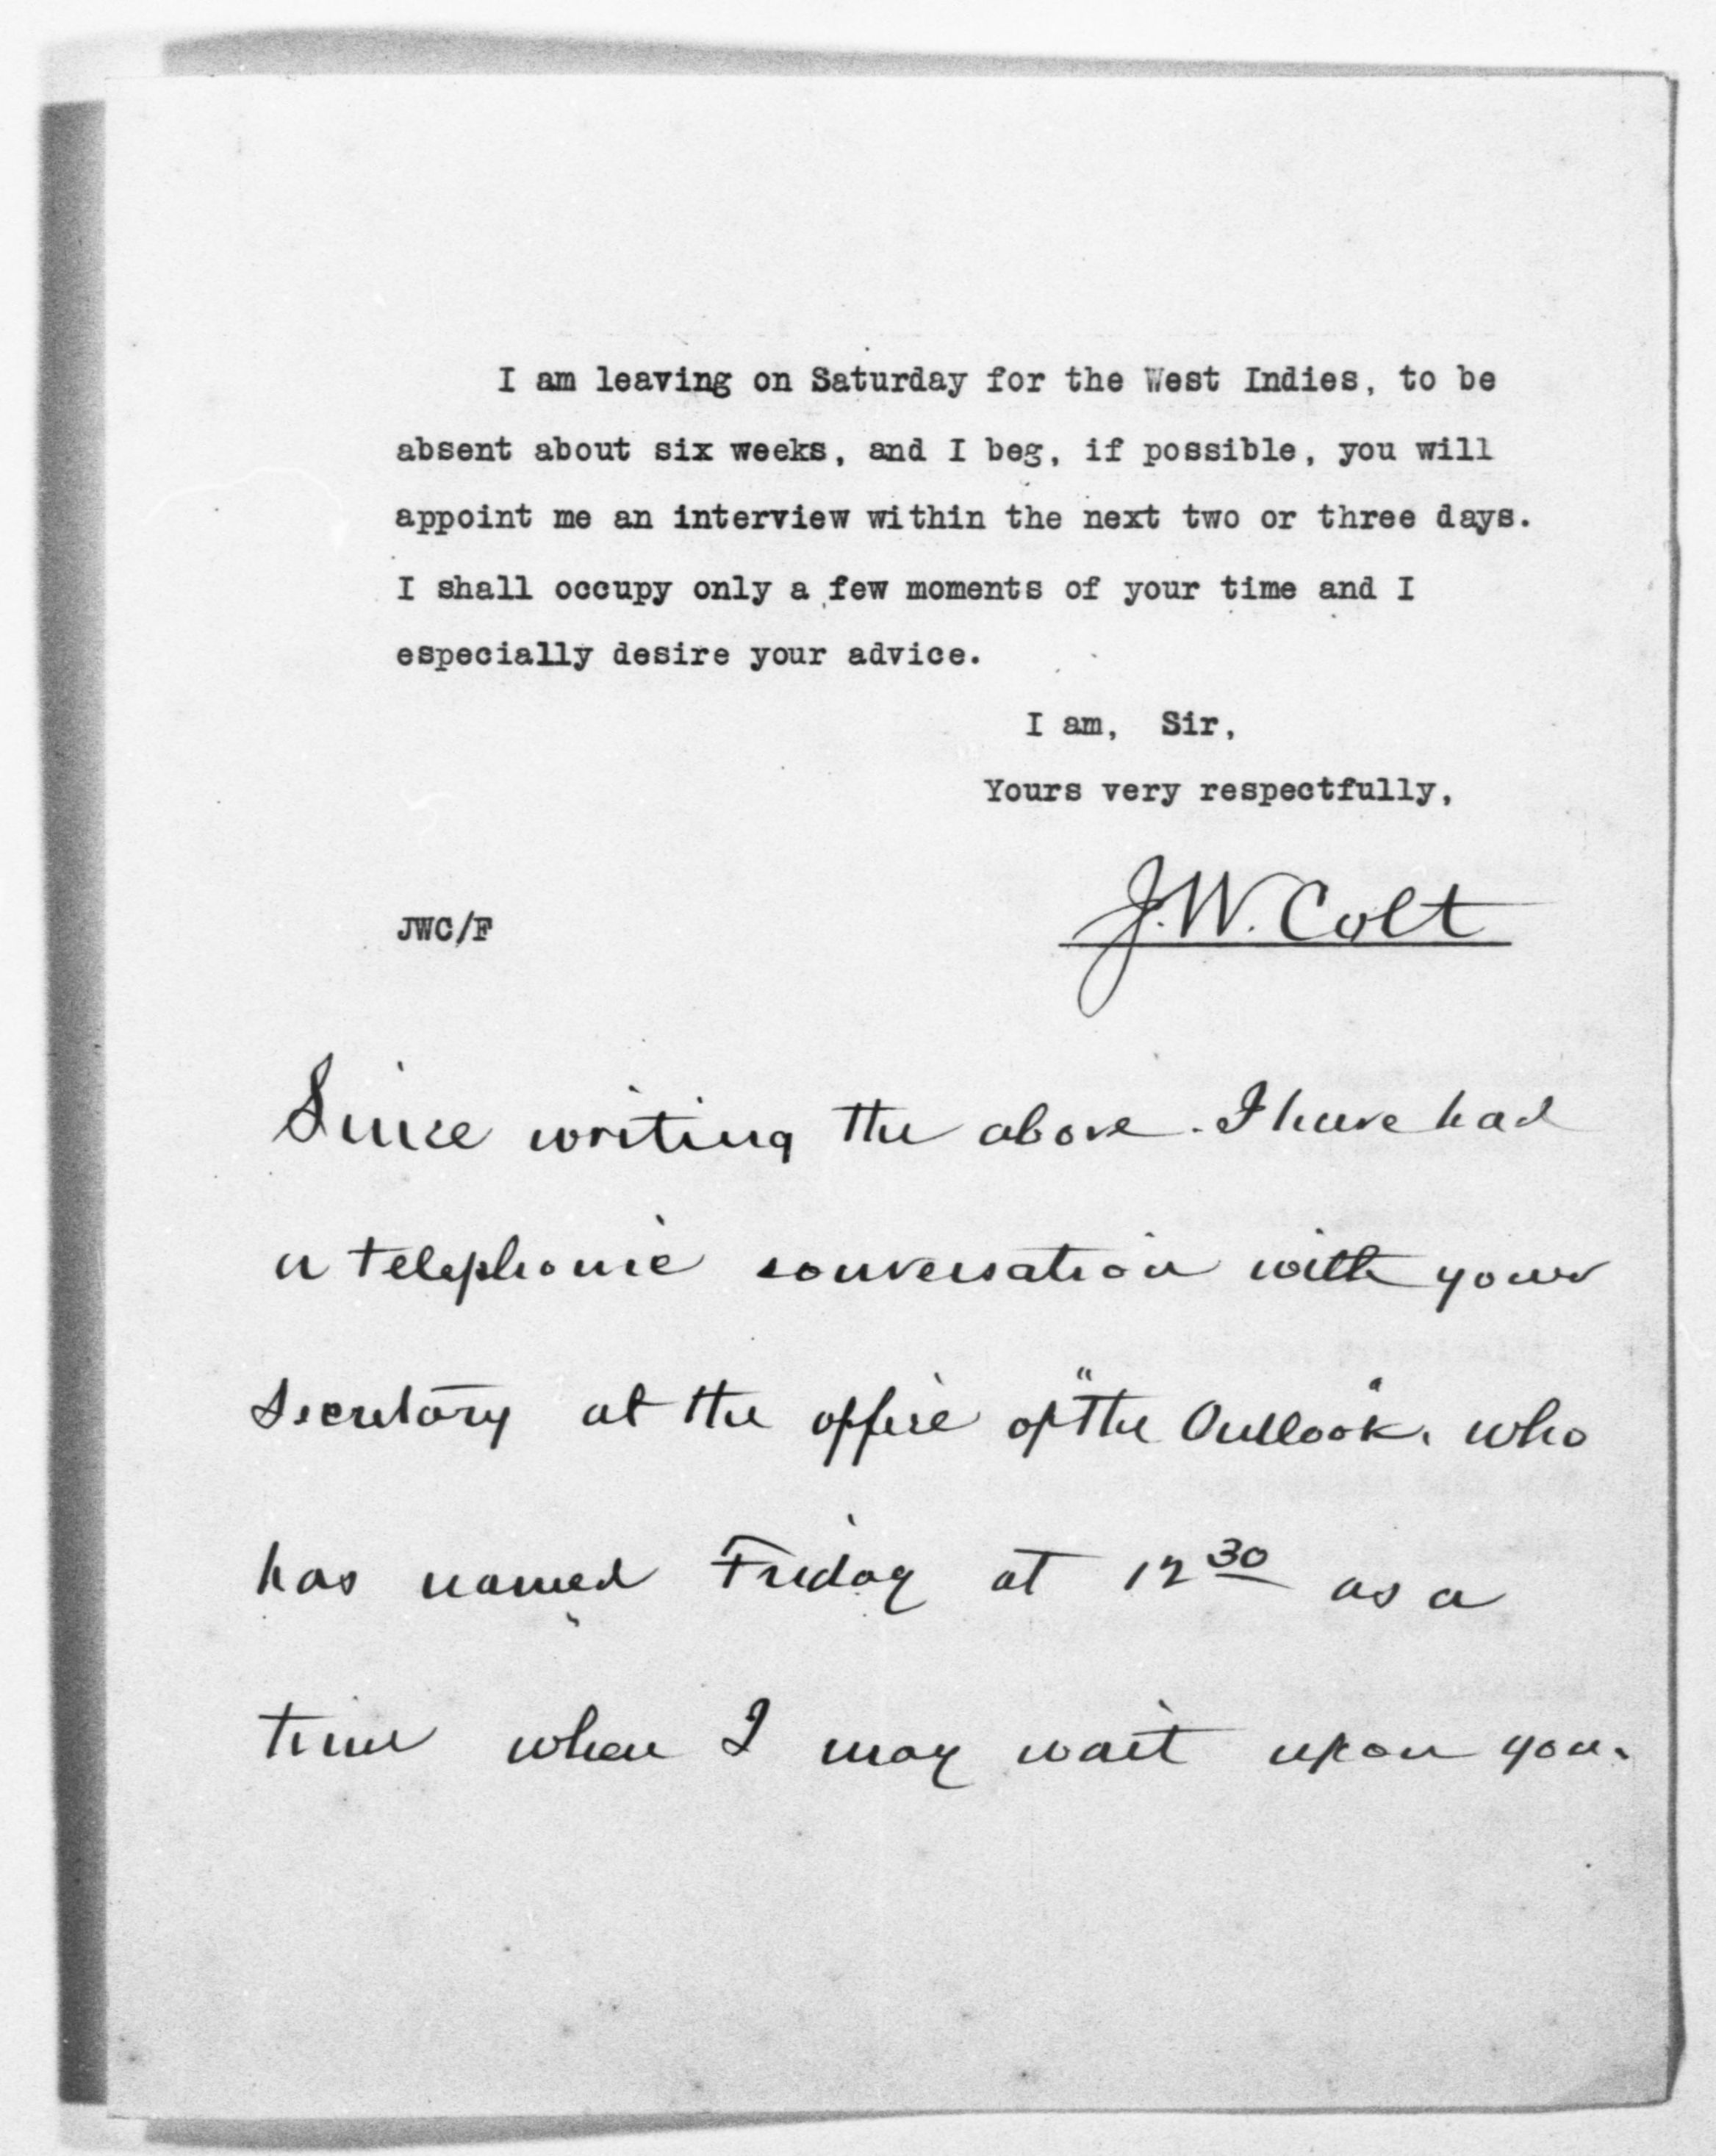 I am leaving on Saturday for the West Indies, to be
absent about six weeks, and I beg, if possible, you will
appoint me an interview within the next two or three days.
I shall occupy only a few moments of your time and I
especially desire your advice.
I am, Sir,
Yours very respectfully,
J.W. Colt
JWC/F
Since writing the above. I have had
a telephonic conversation with your
secretary at the office of "the Outlook", who
has named Friday at 12 30 as a
time when I may wait upon you.